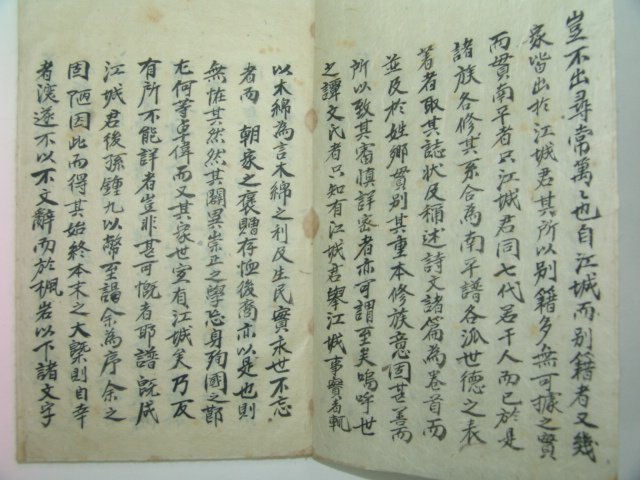 豈不出尋常萬〻也自江城而別籍者又幾
家皆出於江城君其所以別籍多無可據之實
而貫南平者只江城君同七代君千人而已於是
諸族各修其系合為南平譜各派世德之表
著者取其誌狀及稱述詩文諸篇為卷首而
並及於姓鄉貫別其重本修族意固甚善而
所以致其審慎詳密者亦可謂至矣嗚呼世
之譚文氏者只知有江城君擧江城事實者輒
以木綿為言木綿之利及生民實永世不忘
者而 朝家之褒贈存恤後裔亦以是也則
無恠其然然其闢異崇正之學忘身殉國之節
尤何等卓偉而又其家世寔有江城矣乃反
有所不能詳者豈非甚可慨者耶譜既成
江城君後孫鍾九以幣至謁余為序余之
固陋因此而得其始終本末之大槩則自幸
者深遂不以不文辭而於楓岩以下諸文字